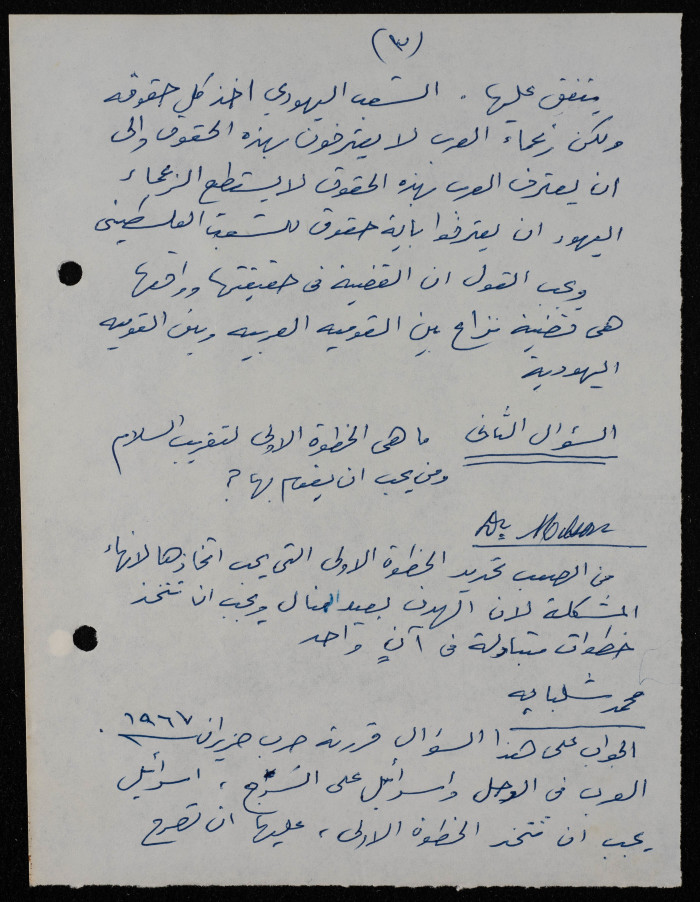 (٣)
يتفق عليها . الشعب اليهودي اخذ كل حقوقه
ولكن زعماء العرب لا يعترفون بهذه الحقوق والى
ان يعترف العرب بهذه الحقوق لا يستطع الزعماء
اليهود ان يعترفوا باية حقوق للشعب الفلسطينى
ويجب القول ان القضية فى حقيقتها وواقعها
هى قضية نزاع بين القوميه العربيه وبين القوميه
اليهودية
السؤال الثانى ما هى الخطوة الاولى لتقريب السلام
ومن يجب ان يقوم بها ?
Dr
من الصعب تحديد الخطوة الاولى التى يجب اتخاذها لانهاء
المشكلة لان الهدف بعيد المنال ويجب ان تتخذ
خطوات متبادلة فى آنٍ واحد
محمد شلبايه
الجواب على هذا السؤال قررته حرب حزيران ١٩٦٧ .
العرب فى الوحل واسرائيل على السّرج ، اسرائيل
يجب ان تتخذ الخطوة الاولى ، عليها ان تصرح